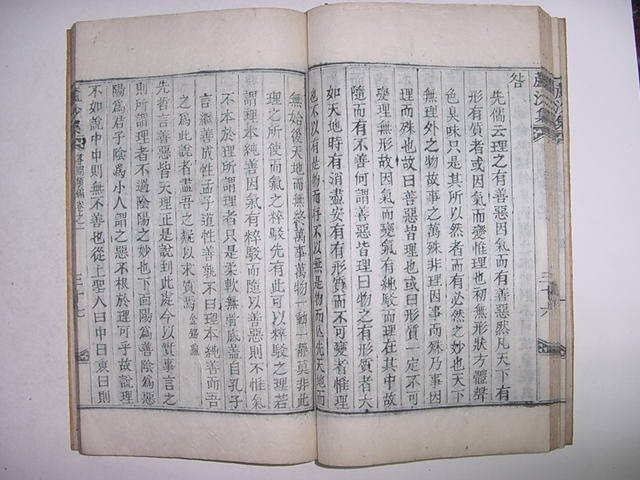 蘆沙集
三十六
答
先儒云理之有善惡因氣而有善惡然凡天下有
形有質者或因氣而變惟理也初無形狀方體聲
色臭味只是其所以然者而有必然之妙也天下
無理外之物故事之萬殊非理因事而殊乃事因
理而殊也故曰善惡皆理也或曰形質一定不可
變理無形故因氣而變氣有純駁而理在其中故
隨而有不善何謂善惡皆理曰物之有形質者大
如天地時有消盡安有有形質而不可變者惟理
也不以有是物而存不以無是物而亡先天地而
無始後天地而無終萬事萬物一動一靜莫非此
理之所使而氣之粹駁先有此可以粹駁之理若
謂理本純善因氣有粹駁而隨以善惡則不惟氣
不本於理所謂理者只是柔軟無骨底盖自孔子
言繼善成性孟子道性善孰不曰理本純善而吾
之為此說者盡吾之疑以求質
先哲言善惡皆天理正是說到此處今以實事言之
則所謂理者不過陰陽之妙也下面陽為善陰為惡
陽為君子陰為小人謂之惡不根於理可乎故說理
不如說中中則無不善也從上聖人曰中曰衷曰則
三十七